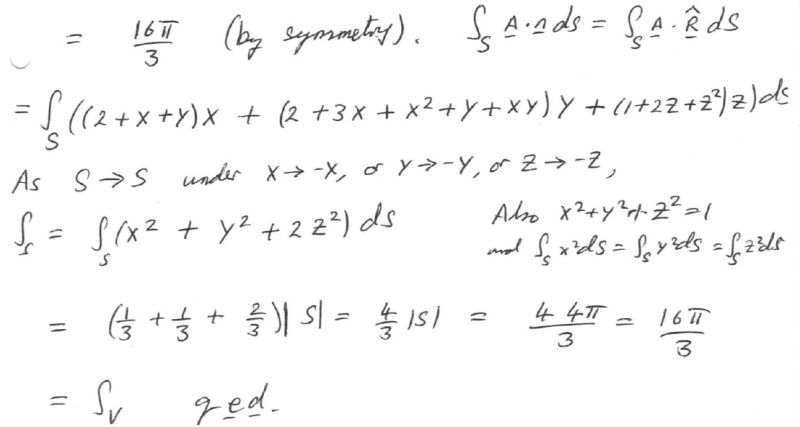 = 16π/3 (by symmetry). ∫_S A·n ds = ∫_S A·R̂ ds
= ∫_S ((2+x+y)x + (2+3x+x²+y+xy)y + (1+2z+z²)z) ds
As S→S under x→-x, or y→-y, or z→-z,
∫_S = ∫_S (x² + y² + 2z²) ds Also x²+y²+z²=1
and ∫_S x²ds = ∫_S y²ds = ∫_S z²ds
= (1/3 + 1/3 + 2/3)|S| = 4/3 |S| = 4 4π/3 = 16π/3
= ∫_V q e d.